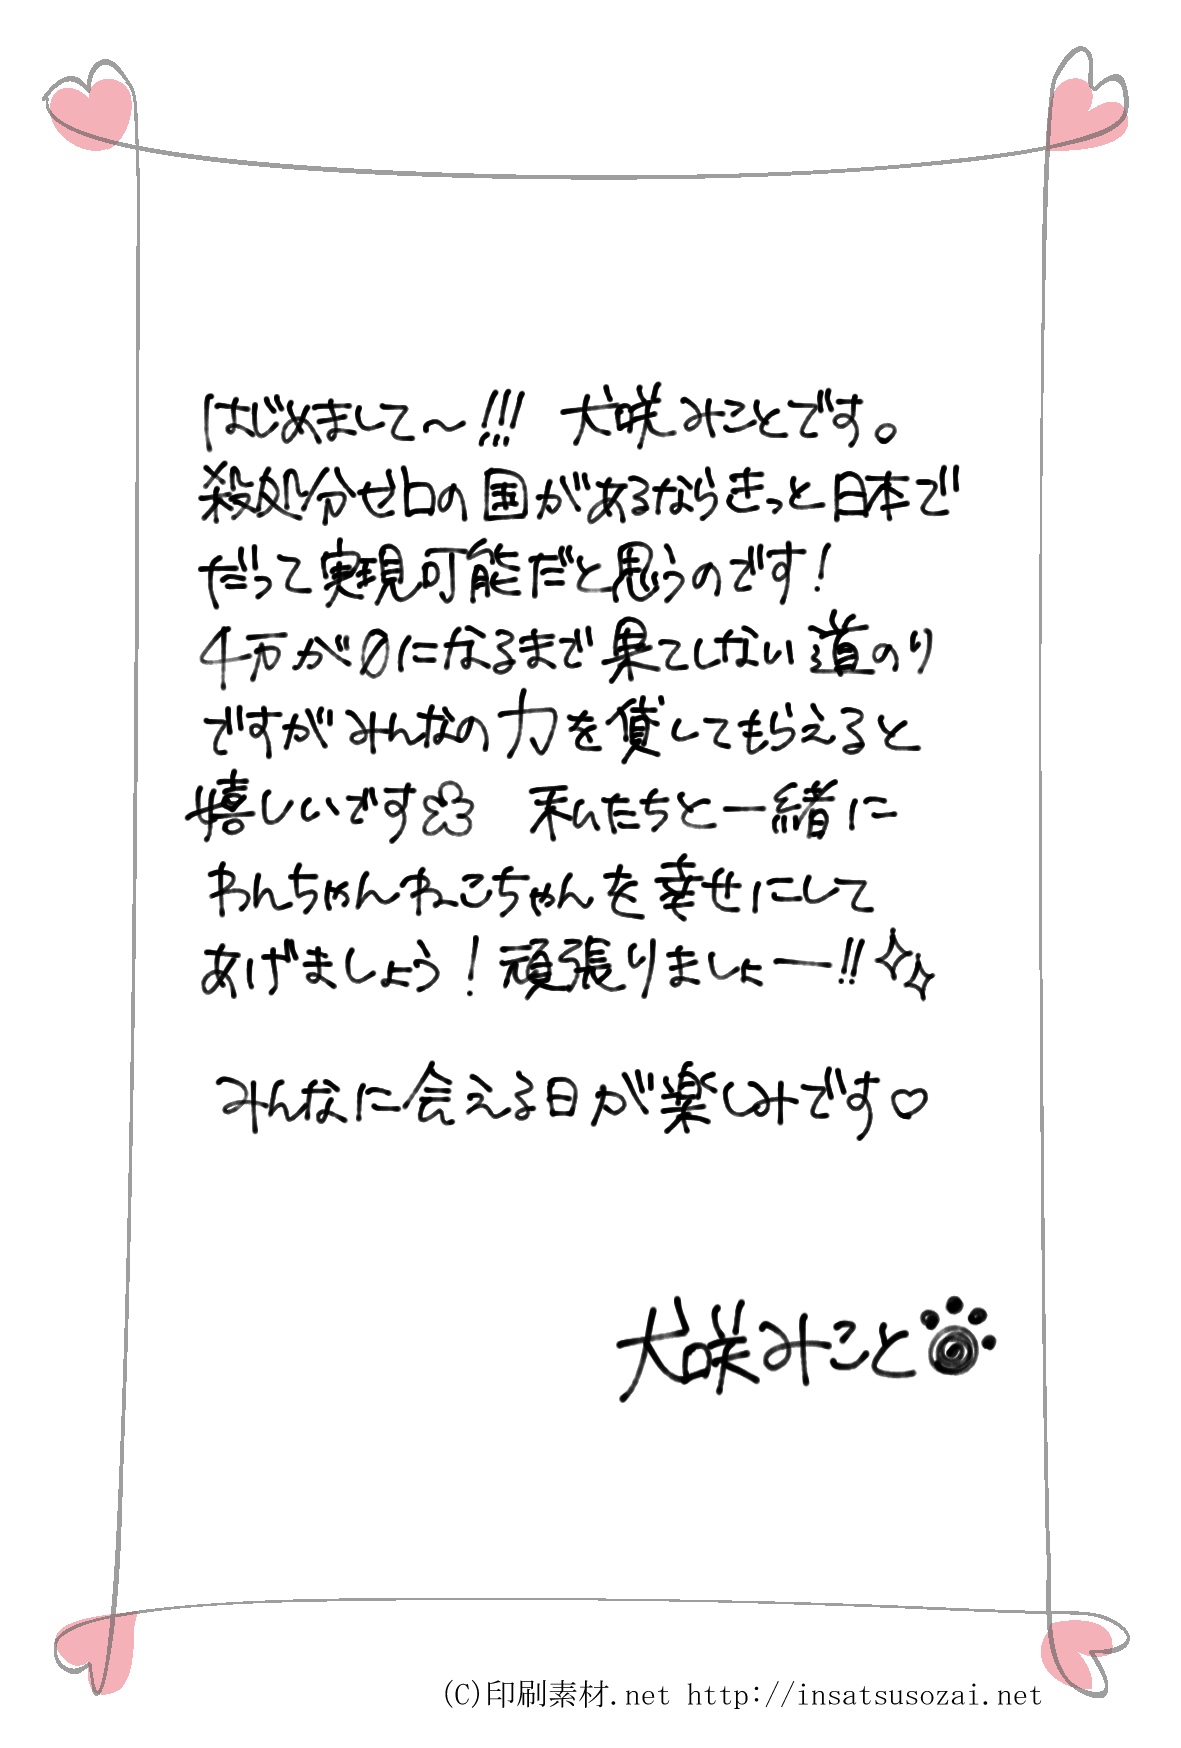 はじめまして～!!! 犬咲みことです。
殺処分ゼロの国があるならきっと日本で
だって実現可能だと思うのです!
4万が0になるまで果てしない道のり
ですがみんなの力を貸してもらえると
嬉しいです 私たちと一緒に
わんちゃんねこちゃんを幸せにして
あげましょう! 頑張りましょー!!
みんなに会える日が楽しみです♡
犬咲みこと
(C)印刷素材.net http://insatsusozai.net